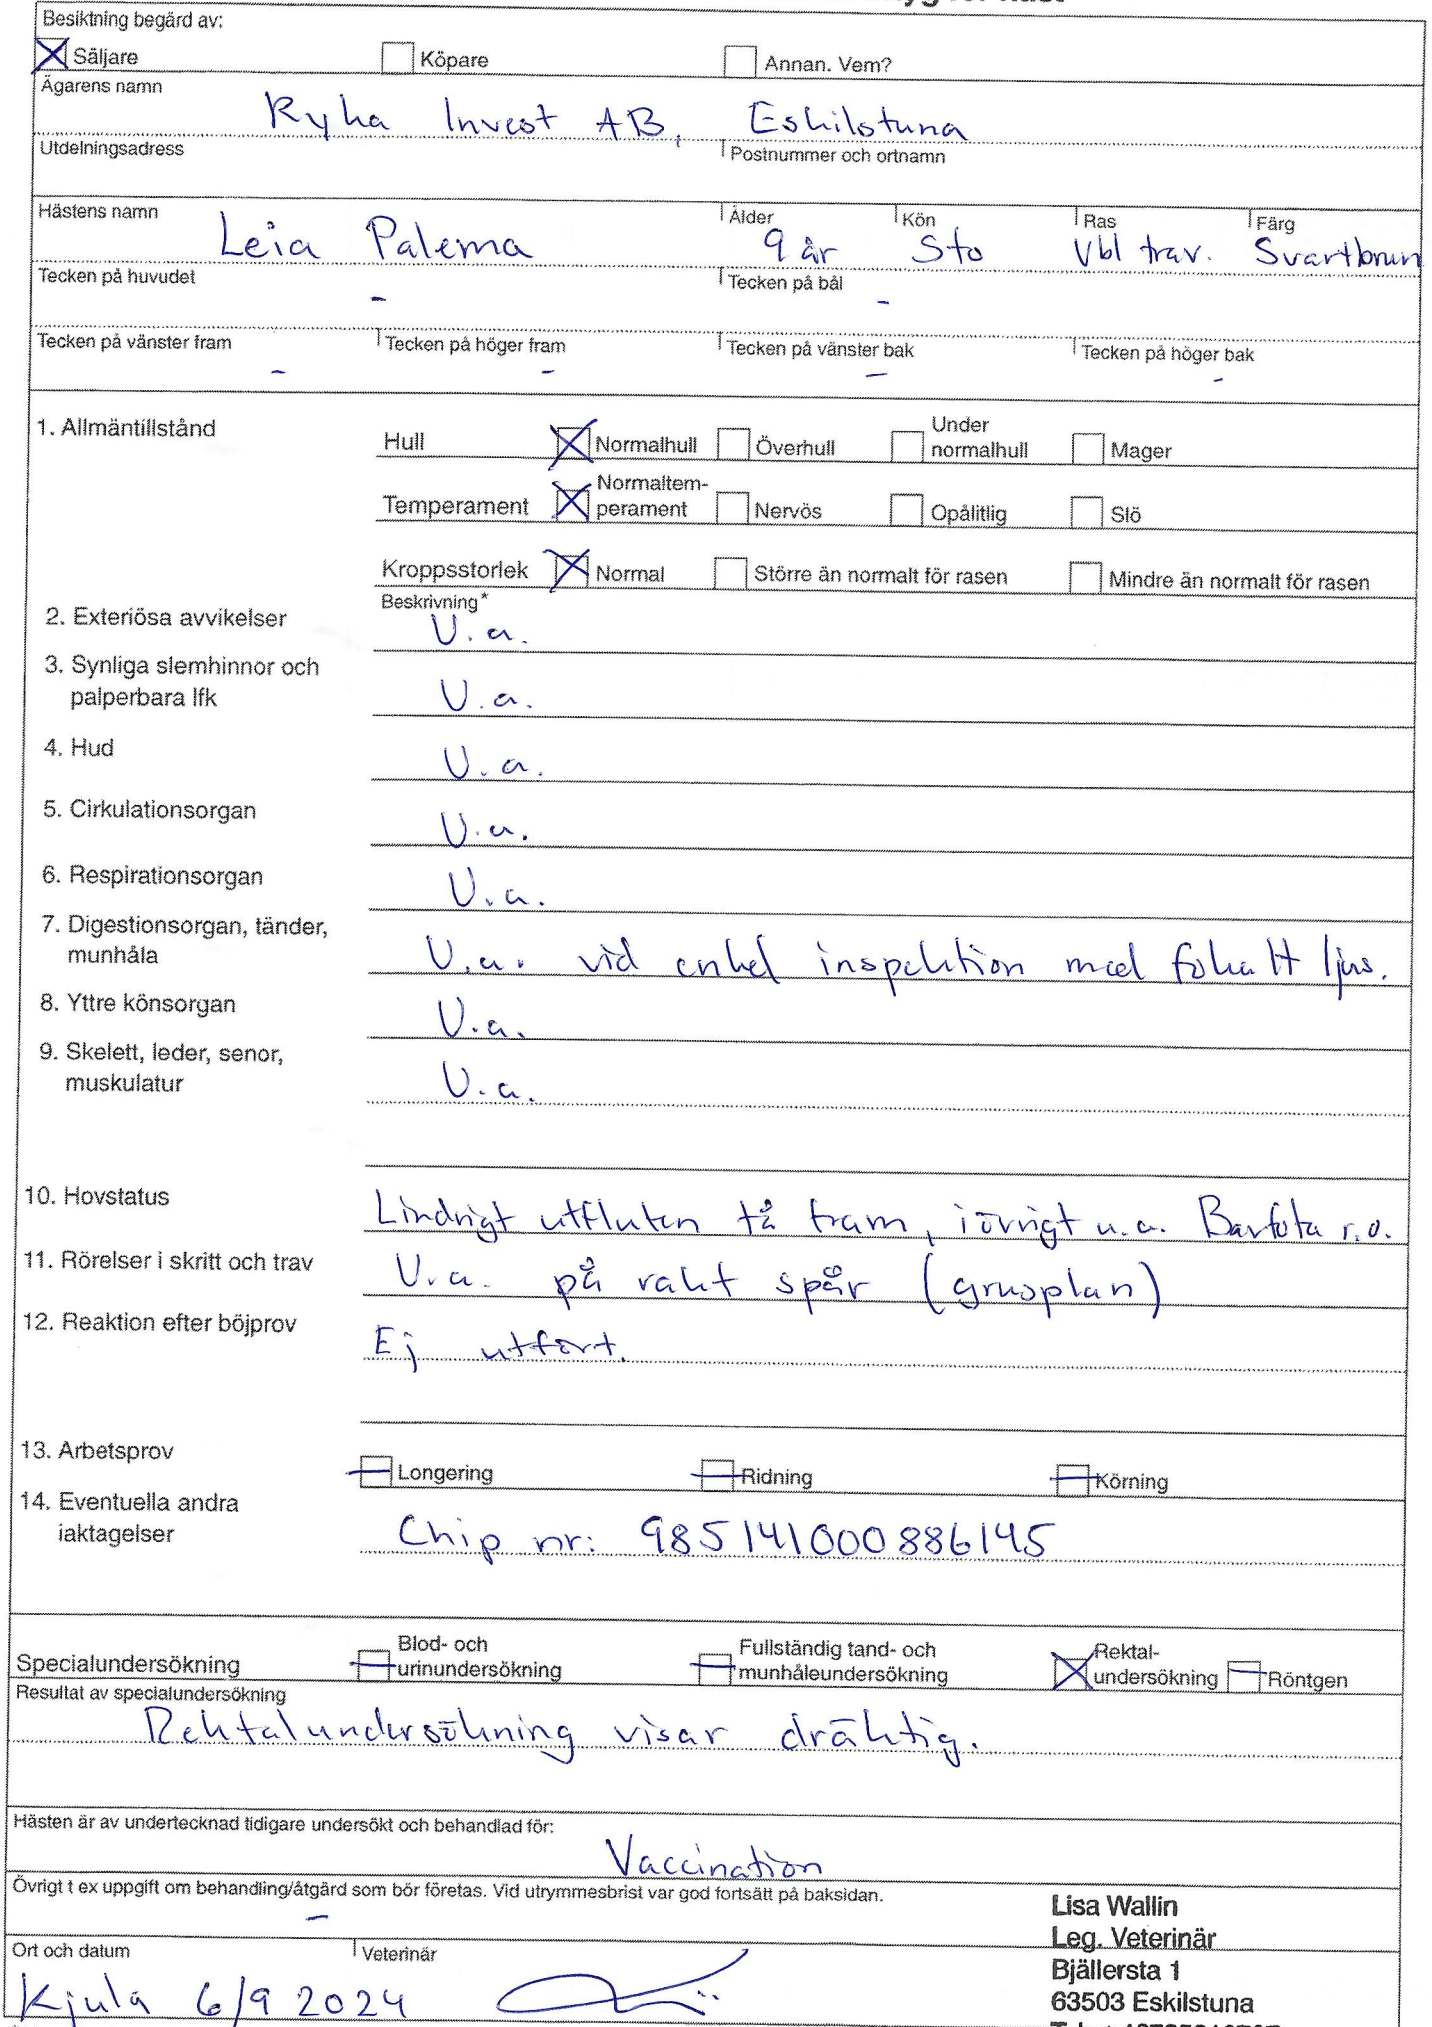 Besiktning begärd av:
Säljare Köpare Annan. Vem?
Ägarens namn
Ryha Invest AB, Eskilstuna
Utdelningsadress Postnummer och ortnamn
Hästens namn Ålder Kön Ras Färg
Leia Palema 9 år Sto Vbl trav. Svartbrun
Tecken på huvudet Tecken på bål
- -
Tecken på vänster fram Tecken på höger fram Tecken på vänster bak Tecken på höger bak
- - - -
1. Allmäntillstånd
Hull Normalhull Överhull Under normalhull Mager
Temperament Normaltem-
perament Nervös Opålitlig Slö
Kroppsstorlek Normal Större än normalt för rasen Mindre än normalt för rasen
Beskrivning*
2. Exteriösa avvikelser U.a.
3. Synliga slemhinnor och
palperbara lfk U.a.
4. Hud U.a.
5. Cirkulationsorgan U.a.
6. Respirationsorgan U.a.
7. Digestionsorgan, tänder,
munhåla U.a. vid enkel inspektion med fokalt ljus.
8. Yttre könsorgan U.a.
9. Skelett, leder, senor,
muskulatur U.a.
10. Hovstatus Lindrigt utfluten tå fram, i övrigt u.a. Barfota r.o.
11. Rörelser i skritt och trav U.a. på rakt spår (grusplan)
12. Reaktion efter böjprov Ej utfört.
13. Arbetsprov Longering Ridning Körning
14. Eventuella andra
iaktagelser Chip nr: 985141000886145
Specialundersökning Blod- och
urinundersökning Fullständig tand- och
munhåleundersökning Rektal-
undersökning Röntgen
Resultat av specialundersökning
Rektalundersökning visar dräktig.
Hästen är av undertecknad tidigare undersökt och behandlad för:
Vaccination
Övrigt t ex uppgift om behandling/åtgärd som bör företas. Vid utrymmesbrist var god fortsätt på baksidan.
-
Lisa Wallin
Leg. Veterinär
Bjällersta 1
63503 Eskilstuna
Ort och datum Veterinär
Kjula 6/9 2024